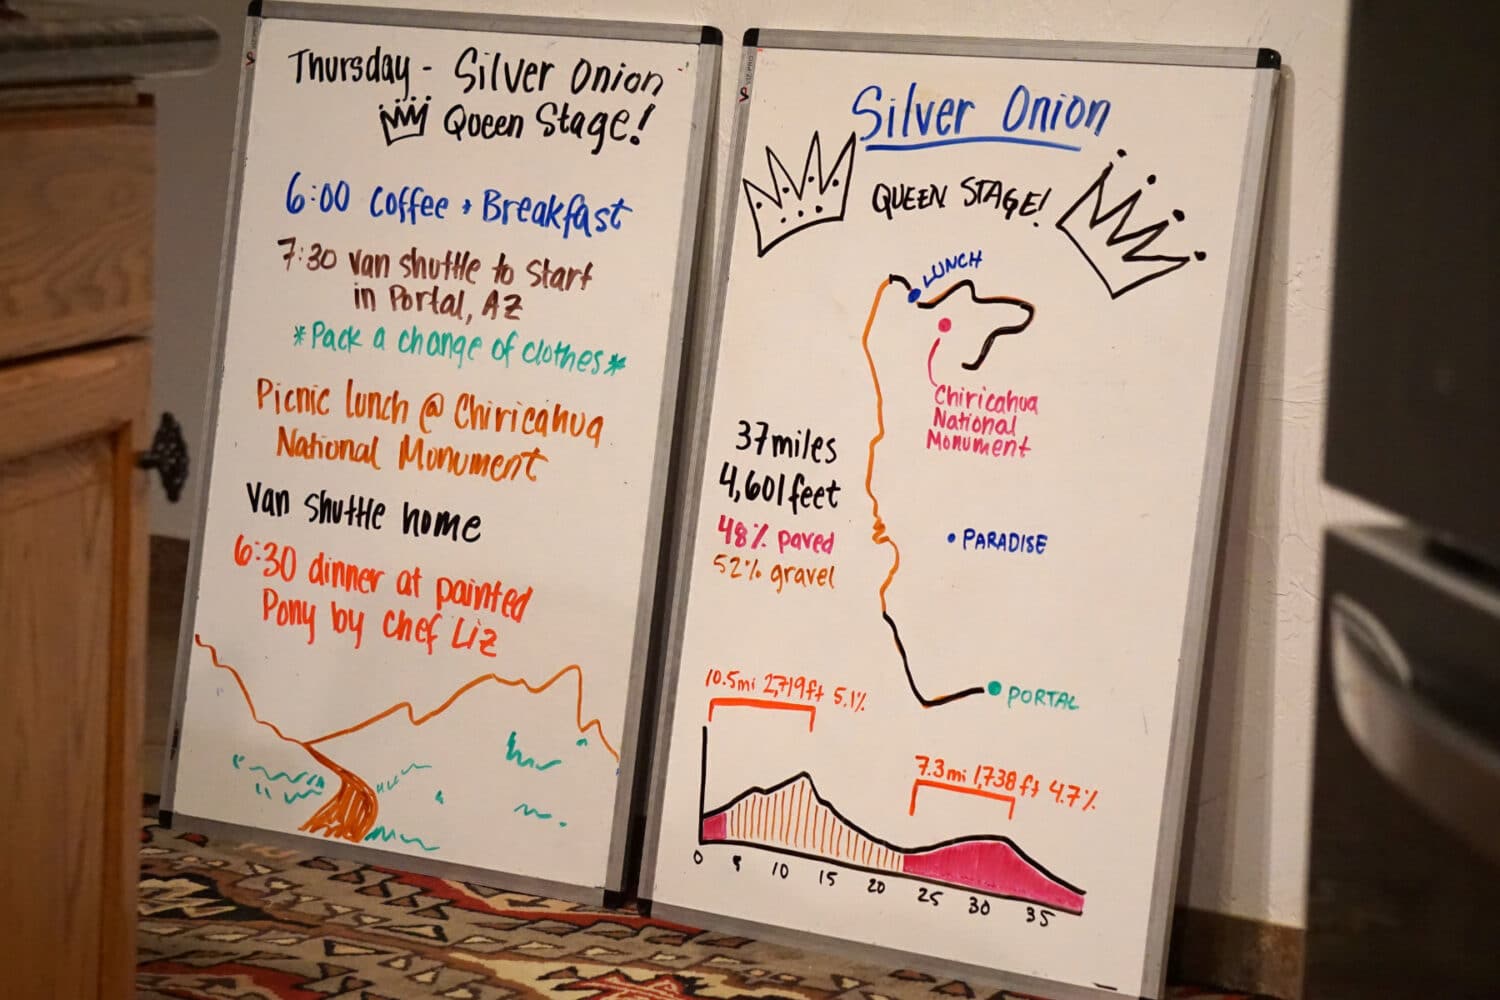 Thursday - Silver Onion
Queen Stage!
6:00 Coffee + Breakfast
7:30 van shuttle to start
in Portal, AZ
*Pack a change of clothes*
Picnic lunch @ Chiricahua
National Monument
Van shuttle home
6:30 dinner at painted
Pony by Chef Liz
Silver Onion
QUEEN STAGE!
LUNCH
Chiricahua
National
Monument
37 miles
4,601 feet
48% paved
52% gravel
PARADISE
PORTAL
10.5mi 2,719ft 5.1%
7.3mi 1,738ft 4.7%
0 5 10 15 20 25 30 35